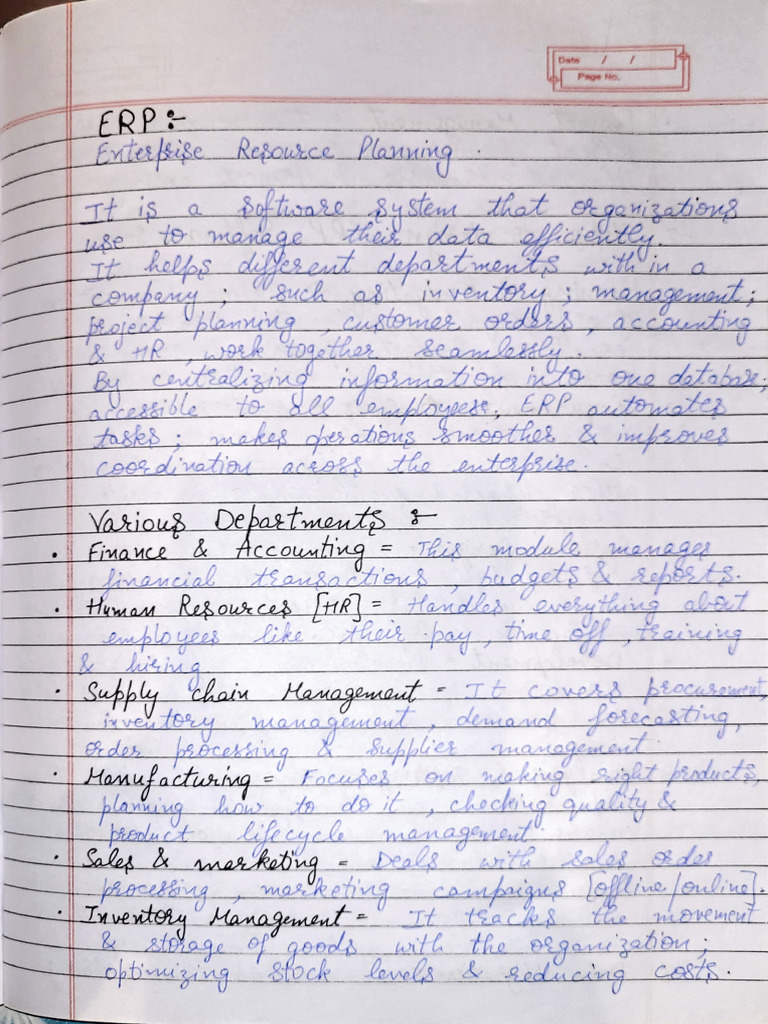 Date / /
Page No.
ERP :-
Enterprise Resource Planning .
It is a software system that organizations
use to manage their data efficiently.
It helps different departments with in a
company ; such as inventory ; management ;
project planning , customer orders , accounting
& HR , work together seamlessly .
By centralizing information into one database ;
accessible to all employees, ERP automates
tasks ; makes operations smoother & improves
coordination across the enterprise .
Various Departments :-
• Finance & Accounting = This module manages
financial transactions , budgets & reports.
• Human Resources [HR] = Handles everything about
employees like their pay , time off , training
& hiring
• Supply chain Management = It covers procurement,
inventory management , demand forecasting,
order processing & supplier management
• Manufacturing = Focuses on making right products,
planning how to do it , checking quality &
product lifecycle management.
• Sales & marketing = Deals with sales order
processing , marketing campaigns [offline/online].
• Inventory Management = It tracks the movement
& storage of goods with the organization ;
optimizing stock levels & reducing costs .